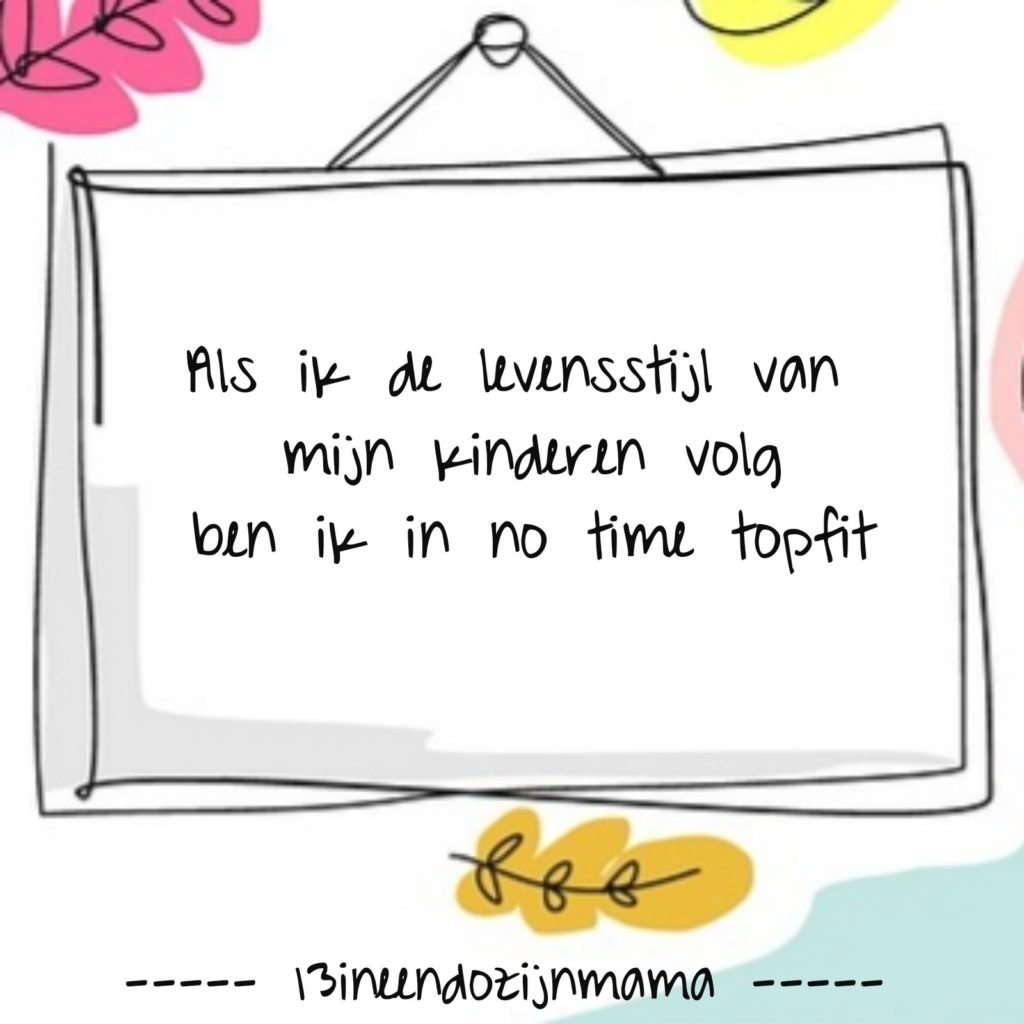 Als ik de levensstijl van
mijn kinderen volg
ben ik in no time topfit
----- 13ineendozijnmama -----